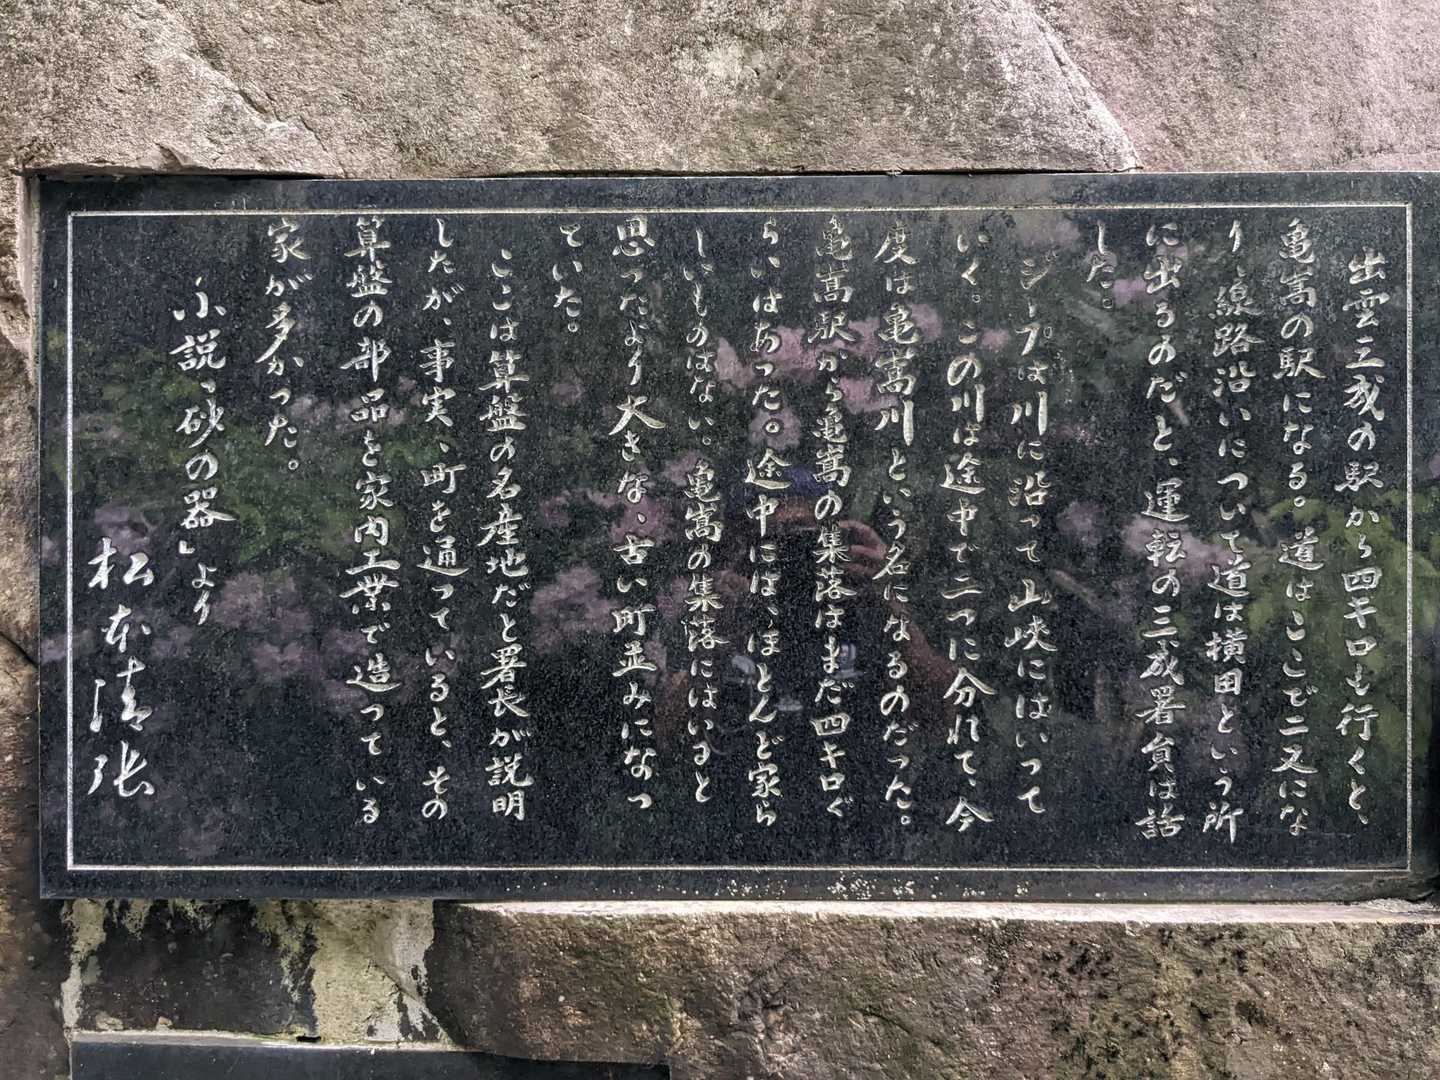 出雲三成の駅から四キロも行くと、
亀嵩の駅になる。道はここで二又にな
り、線路沿いについて道は横田という所
に出るのだと、運転の三成署員は話
した。
ジープは川に沿って山峡にはいって
いく。この川は途中で二つに分れて、今
度は亀嵩川という名になるのだった。
亀嵩駅から亀嵩の集落はまだ四キロぐ
らいはあった。途中には、ほとんど家ら
しいものはない。亀嵩の集落にはいると
思ったより大きな、古い町並みになっ
ていた。
ここは算盤の名産地だと署長が説明
したが、事実、町を通っていると、その
算盤の部品を家内工業で造っている
家が多かった。
小説「砂の器」より
松本清張